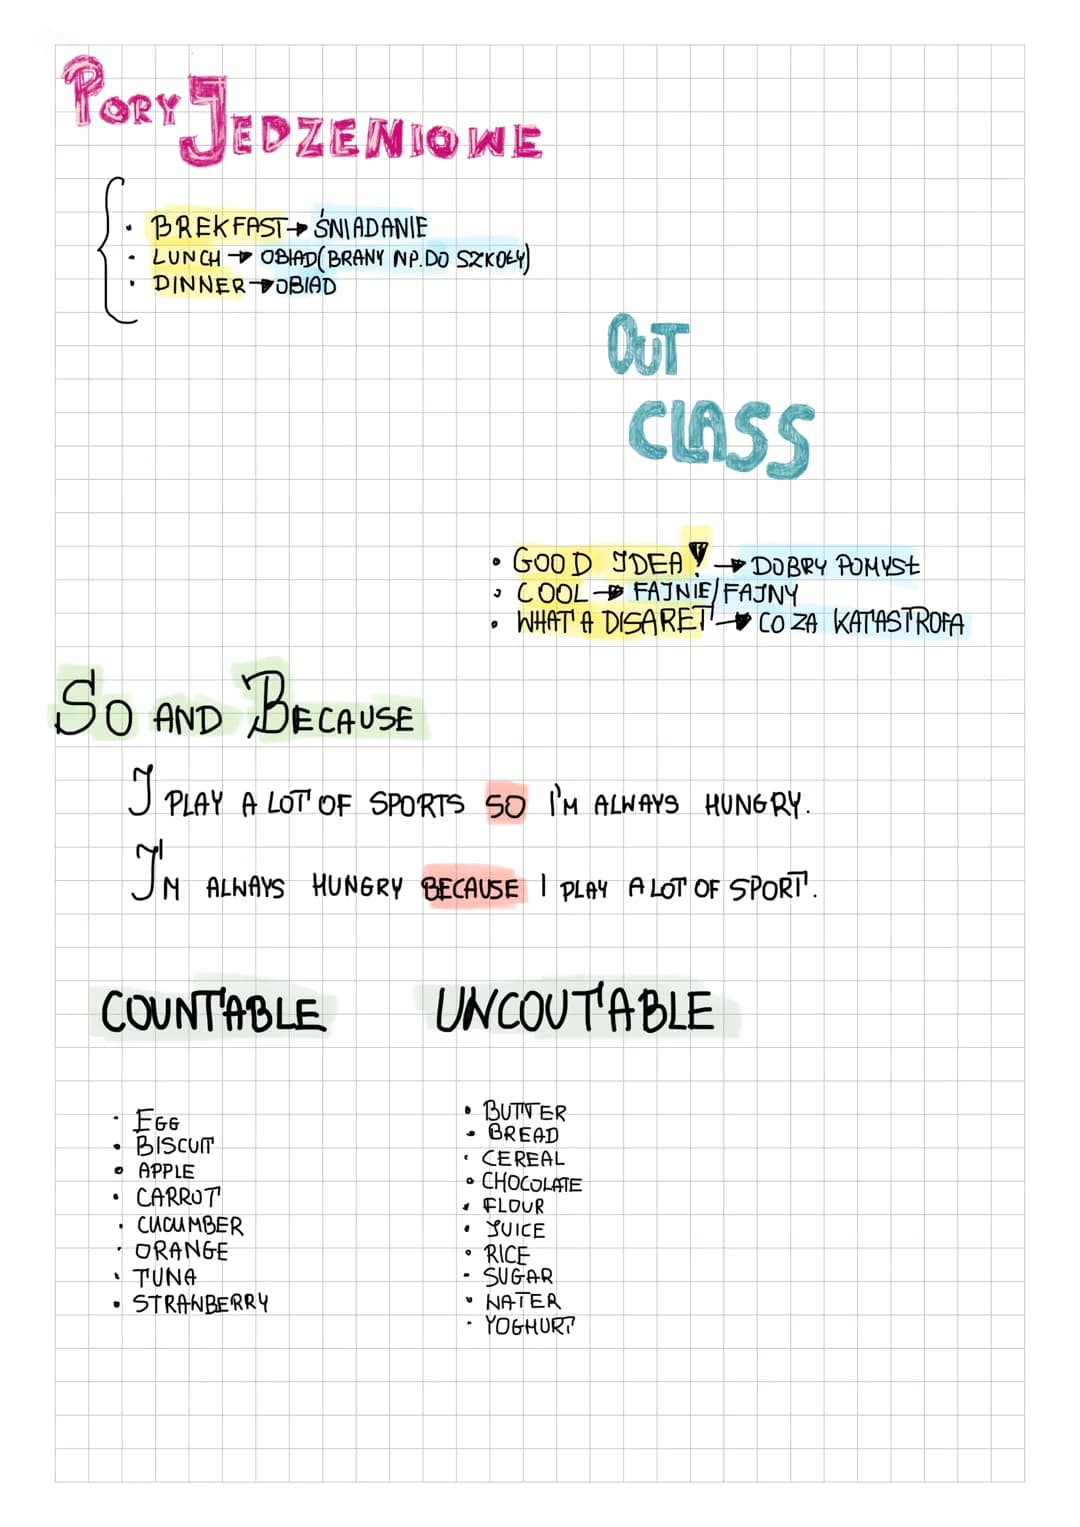 PORY JEDZENIOWE
• BREKFAST → ŚNIADANIE
• LUNCH → OBIAD (BRANY NP. DO SZKOŁY)
• DINNER → OBIAD
OUT
CLASS
• GOOD IDEA! → DOBRY POMYSŁ
• COOL → FAJNIE/FAJNY
• WHAT A DISARET → CO ZA KATASTROFA
SO AND BECAUSE
I PLAY A LOT OF SPORTS SO I'M ALWAYS HUNGRY.
I'M ALWAYS HUNGRY BECAUSE I PLAY A LOT OF SPORT.
COUNTABLE
• EGG
• BISCUIT
• APPLE
• CARROT
• CUCUMBER
• ORANGE
• TUNA
• STRAWBERRY
UNCOUTABLE
• BUTTER
• BREAD
• CEREAL
• CHOCOLATE
• FLOUR
• JUICE
• RICE
• SUGAR
• WATER
• YOGHURT